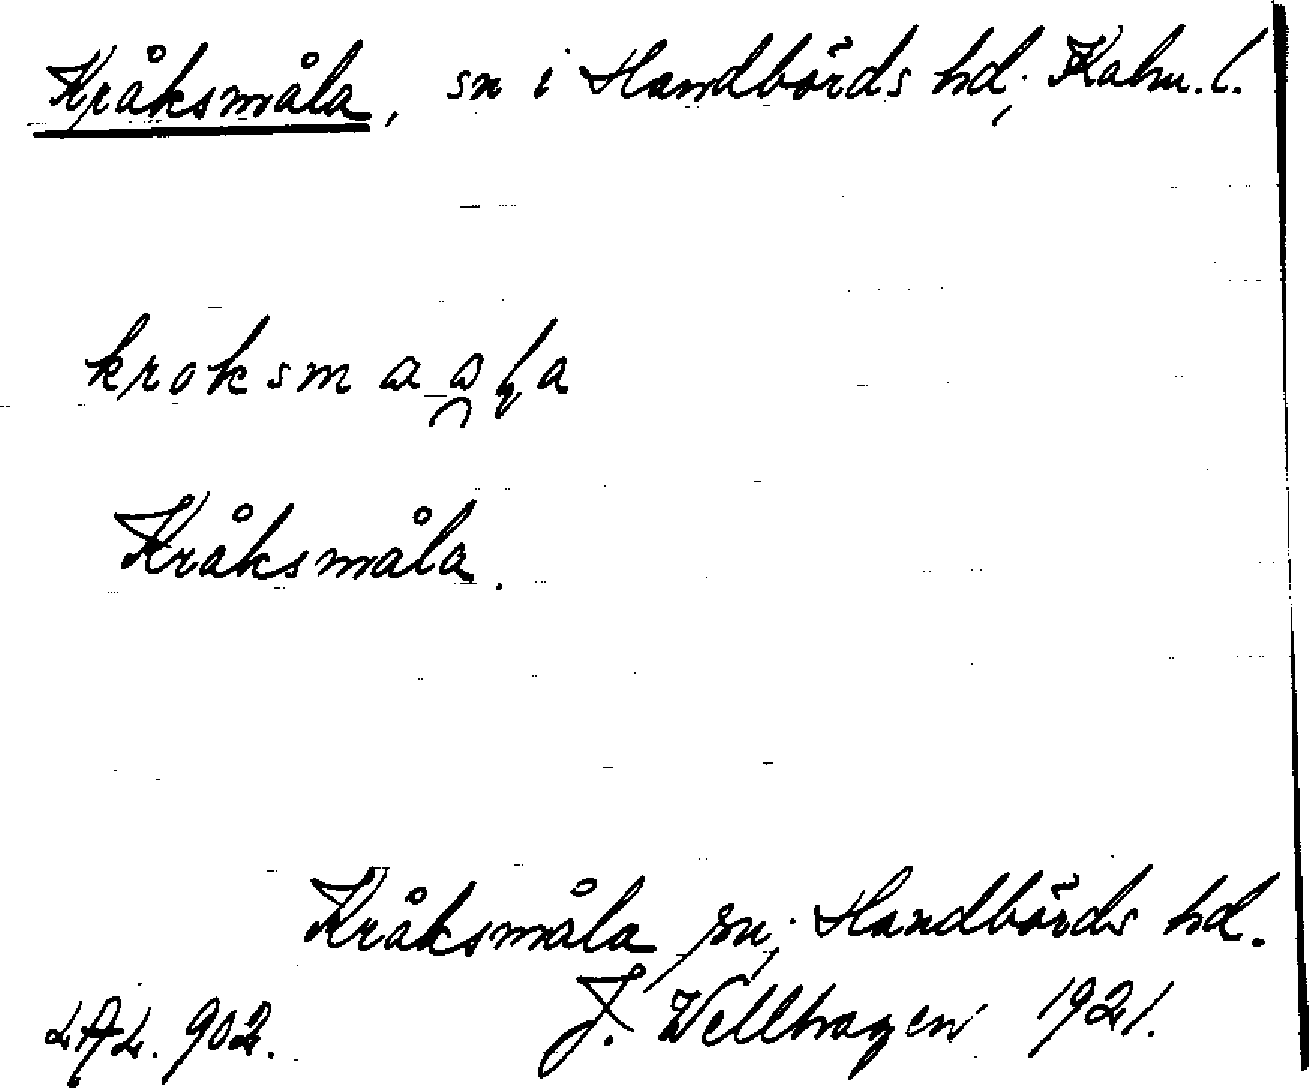 Kråksmåla, sn i Handbörds hd; Kalm. l.
Kråksmåla.
Kråksmåla sn; Handbörds hd.
J. Wellhagen 1921.
LAL. 902.